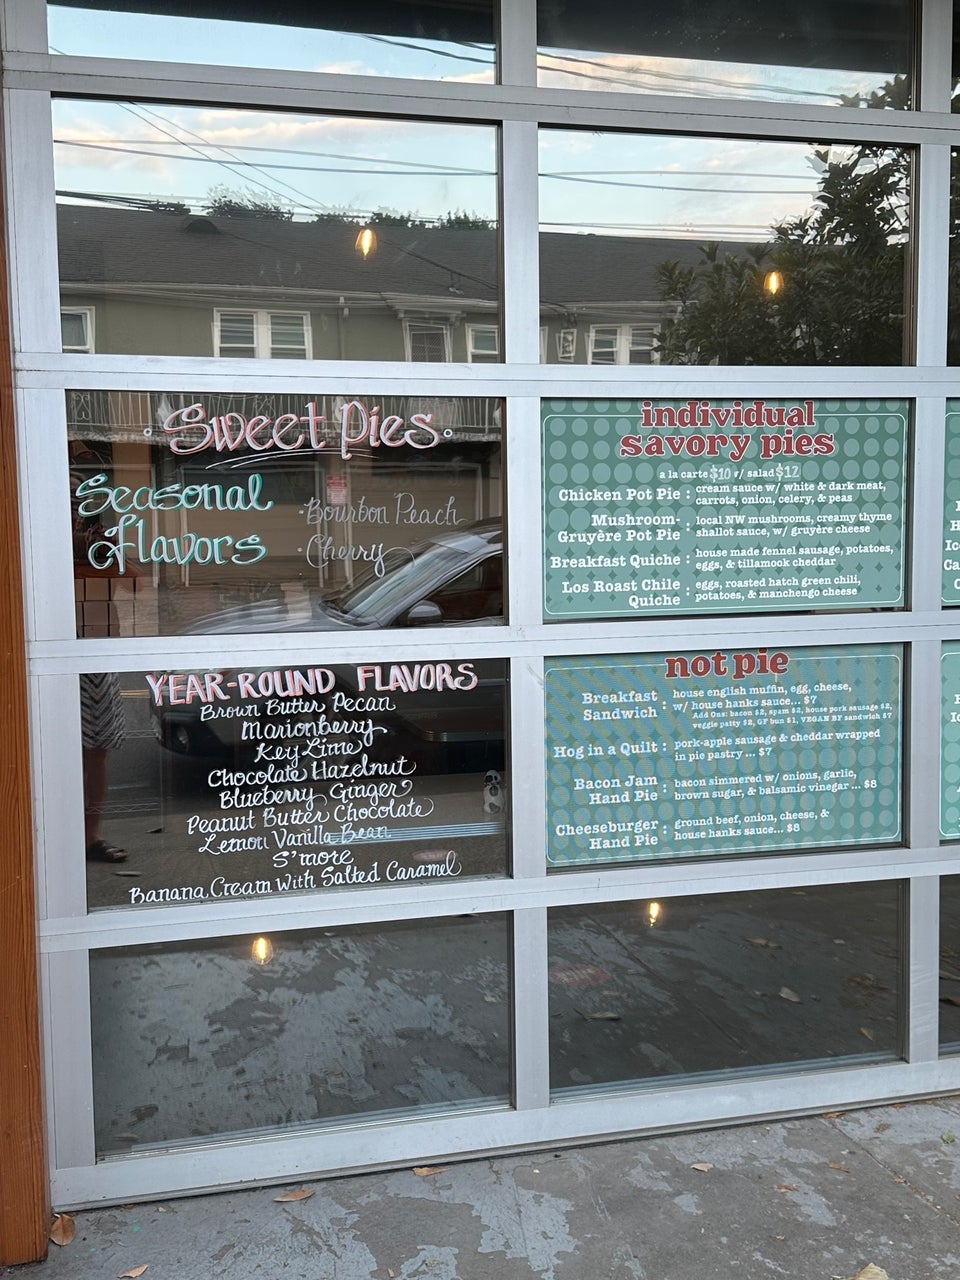 Sweet Pies
Seasonal
Flavors
· Bourbon Peach
· Cherry
YEAR-ROUND FLAVORS
Brown Butter Pecan
Marionberry
Key Lime
Chocolate Hazelnut
Blueberry Ginger
Peanut Butter Chocolate
Lemon Vanilla Bean
S'more
Banana Cream with Salted Caramel
individual
savory pies
a la carte $10 w/ salad $12
Chicken Pot Pie : cream sauce w/ white & dark meat,
carrots, onion, celery, & peas
Mushroom- : local NW mushrooms, creamy thyme
Gruyère Pot Pie shallot sauce, w/ gruyère cheese
Breakfast Quiche : house made fennel sausage, potatoes,
eggs, & tillamook cheddar
Los Roast Chile : eggs, roasted hatch green chili,
Quiche potatoes, & manchengo cheese
not pie
Breakfast : house english muffin, egg, cheese,
Sandwich w/ house hanks sauce... $7
Add Ons: bacon $2, spam $2, house pork sausage $2,
veggie patty $2, GF bun $1, VEGAN BF sandwich $7
Hog in a Quilt : pork-apple sausage & cheddar wrapped
in pie pastry ... $7
Bacon Jam : bacon simmered w/ onions, garlic,
Hand Pie brown sugar, & balsamic vinegar ... $8
Cheeseburger : ground beef, onion, cheese, &
Hand Pie house hanks sauce... $8